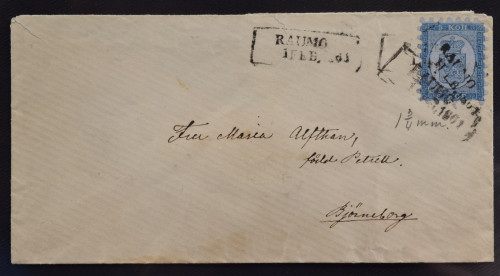 RAUMO
1 FEB. 1861
5 KOP.
RAUMO
RAUMO
1861
1 3/4 mm.
Fru Maria Alfthan,
född Petrell
Björneborg